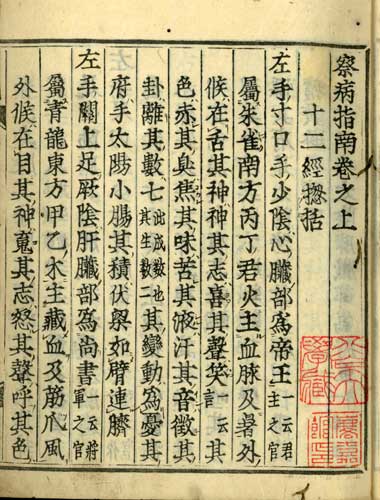 察病指南卷之上
十二經揔括
左手寸口手少陰心臟部爲帝王一云君主之官
屬朱雀南方丙丁君火主血脉及暑外
候在舌其神神其志喜其聲笑一云言其
色赤其臭焦其味苦其液汗其音徵其
卦離其數七此成數也其生數二其變動爲憂其
府手太陽小腸其積伏梁如臂連臍
左手關上足厥陰肝臟部爲尚書一云將軍之官
屬青龍東方甲乙木主藏血及筋爪風
外候在目其神䰟其志怒其聲呼其色